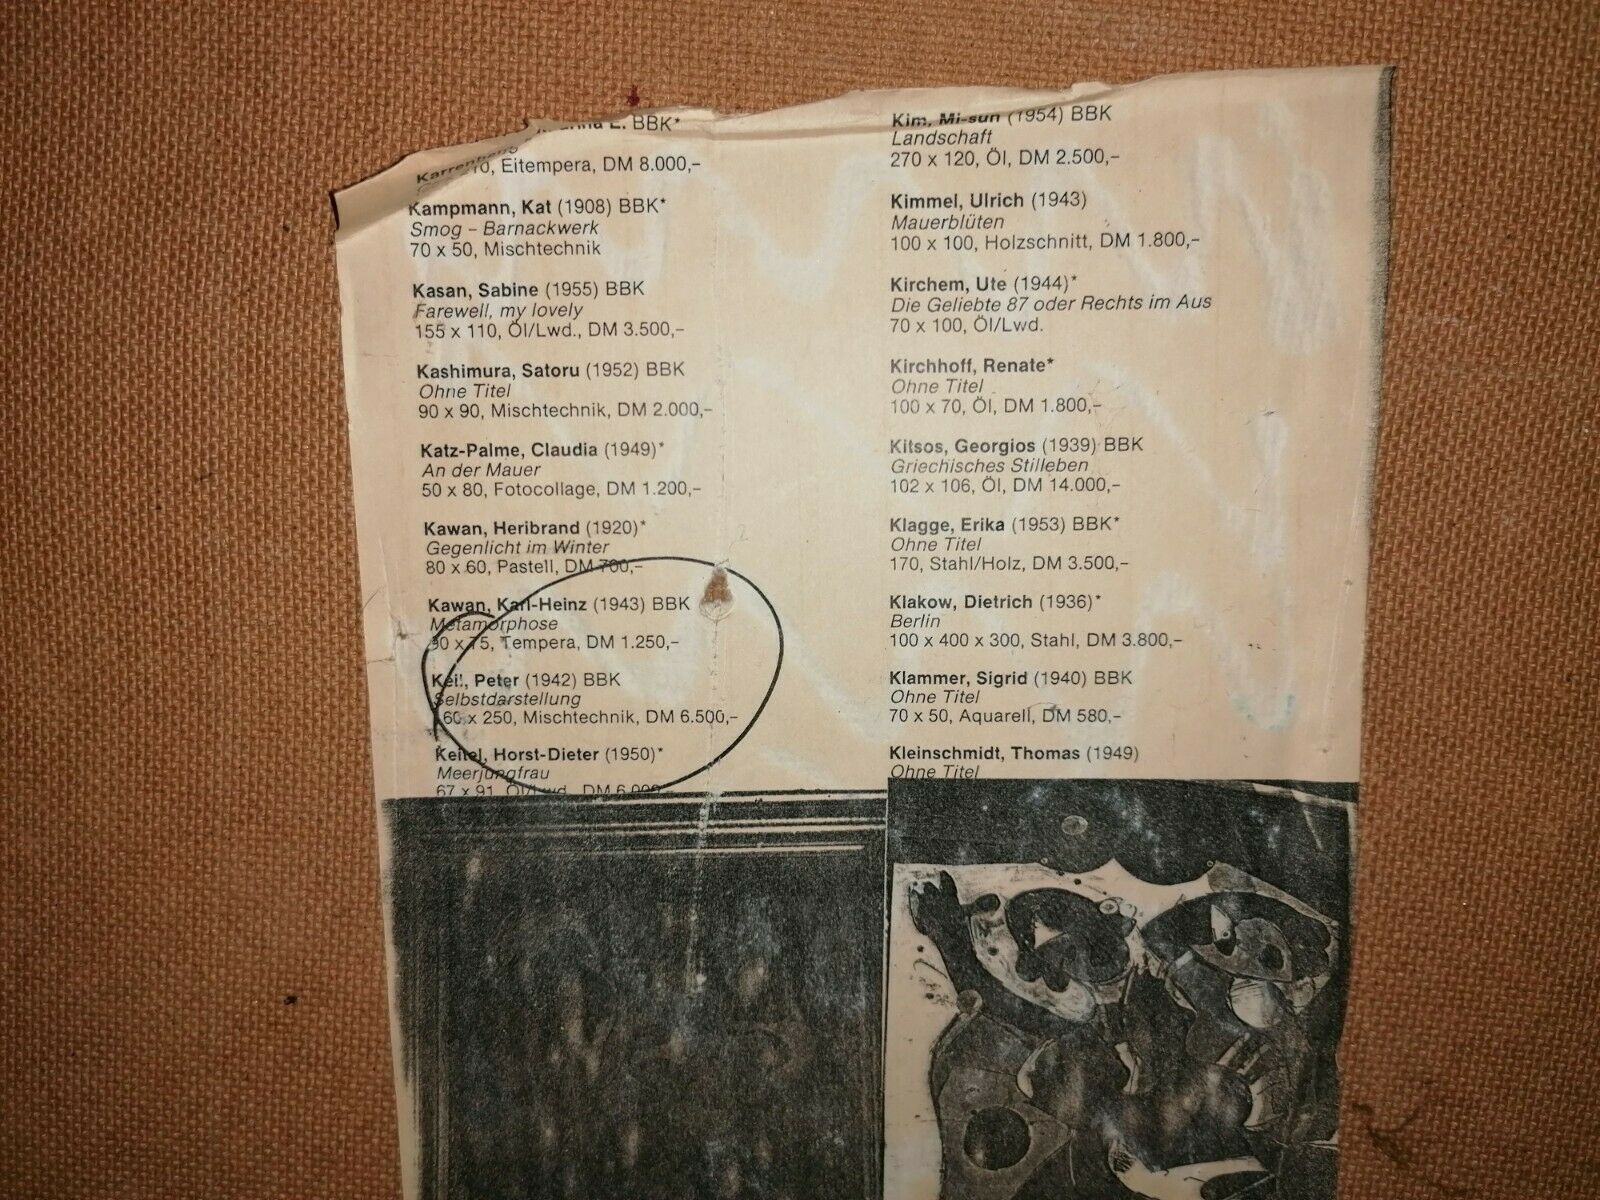 BBK*
Eitempera, DM 8.000,–
Kampmann, Kat (1908) BBK*
Smog – Barnackwerk
70 x 50, Mischtechnik
Kasan, Sabine (1955) BBK
Farewell, my lovely
155 x 110, Öl/Lwd., DM 3.500,–
Kashimura, Satoru (1952) BBK
Ohne Titel
90 x 90, Mischtechnik, DM 2.000,–
Katz-Palme, Claudia (1949)*
An der Mauer
50 x 80, Fotocollage, DM 1.200,–
Kawan, Heribrand (1920)*
Gegenlicht im Winter
80 x 60, Pastell, DM 700,–
Kawan, Karl-Heinz (1943) BBK
Metamorphose
90 x 75, Tempera, DM 1.250,–
Keil, Peter (1942) BBK
Selbstdarstellung
160 x 250, Mischtechnik, DM 6.500,–
Keitel, Horst-Dieter (1950)*
Meerjungfrau
67 x 91, Öl/Lwd., DM 6.000
Kim, Mi-sun (1954) BBK
Landschaft
270 x 120, Öl, DM 2.500,–
Kimmel, Ulrich (1943)
Mauerblüten
100 x 100, Holzschnitt, DM 1.800,–
Kirchem, Ute (1944)*
Die Geliebte 87 oder Rechts im Aus
70 x 100, Öl/Lwd.
Kirchhoff, Renate*
Ohne Titel
100 x 70, Öl, DM 1.800,–
Kitsos, Georgios (1939) BBK
Griechisches Stilleben
102 x 106, Öl, DM 14.000,–
Klagge, Erika (1953) BBK*
Ohne Titel
170, Stahl/Holz, DM 3.500,–
Klakow, Dietrich (1936)*
Berlin
100 x 400 x 300, Stahl, DM 3.800,–
Klammer, Sigrid (1940) BBK
Ohne Titel
70 x 50, Aquarell, DM 580,–
Kleinschmidt, Thomas (1949)
Ohne Titel